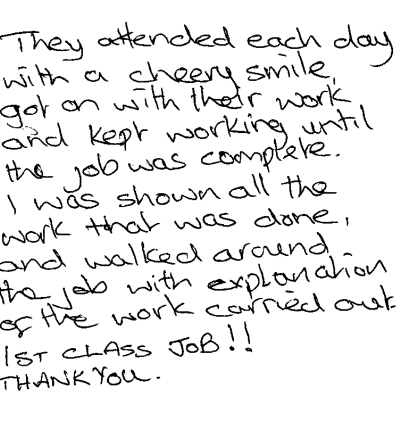 They attended each day
with a cheery smile,
got on with their work
and kept working until
the job was complete.
I was shown all the
work that was done,
and walked around
the job with explanation
of the work carried out
1ST CLASS JOB!!
THANK YOU.